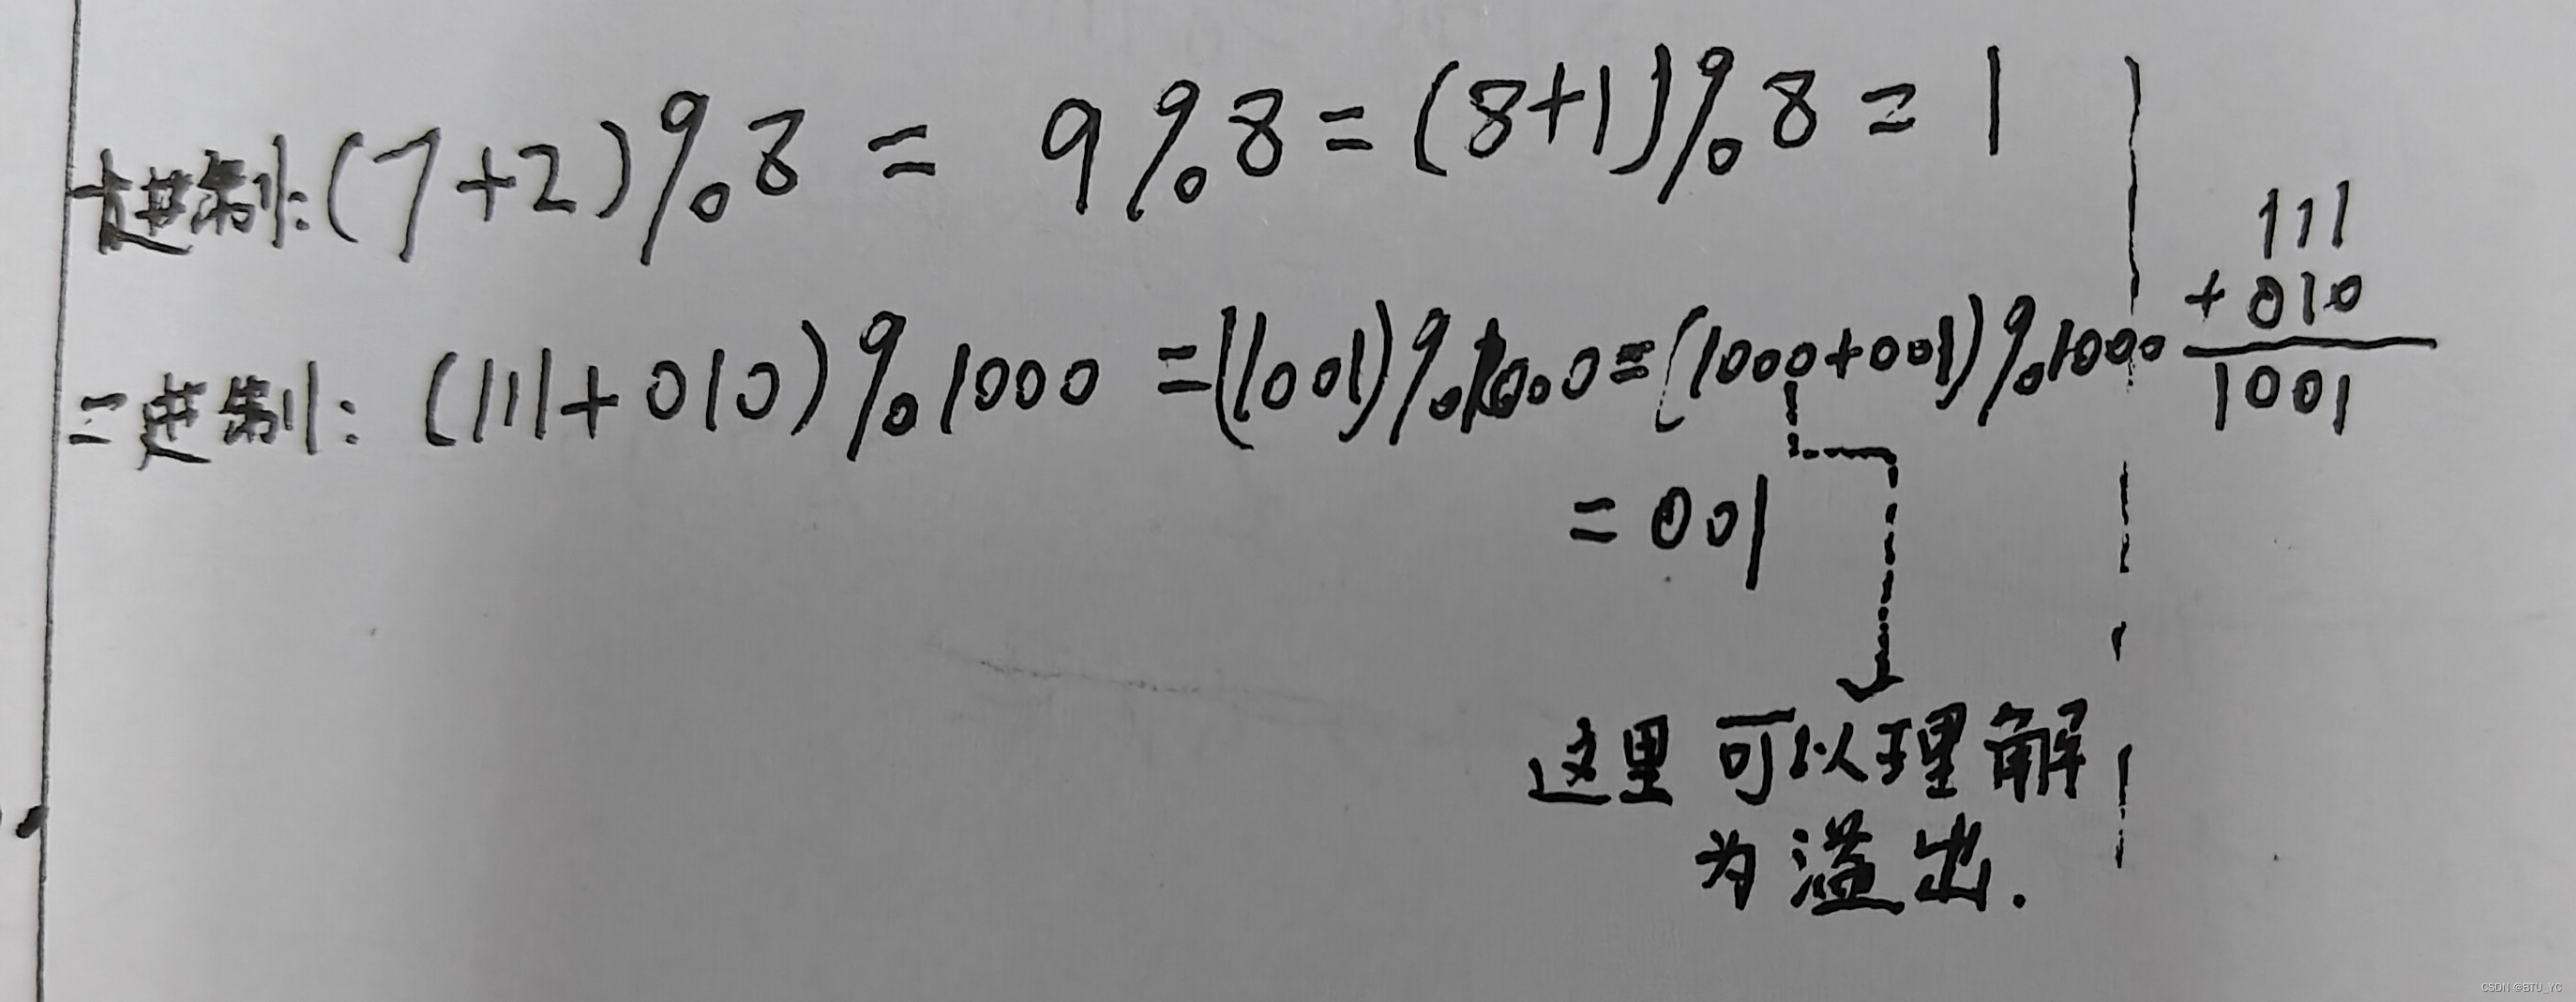 十进制: (7+2)%8 = 9%8 = (8+1)%8 = 1
111
+ 010
1001
二进制: (111+010)%1000 = (1001)%1000 = (1000+001)%1000
= 001
这里可以理解
为溢出.
CSDN @BTU_YC